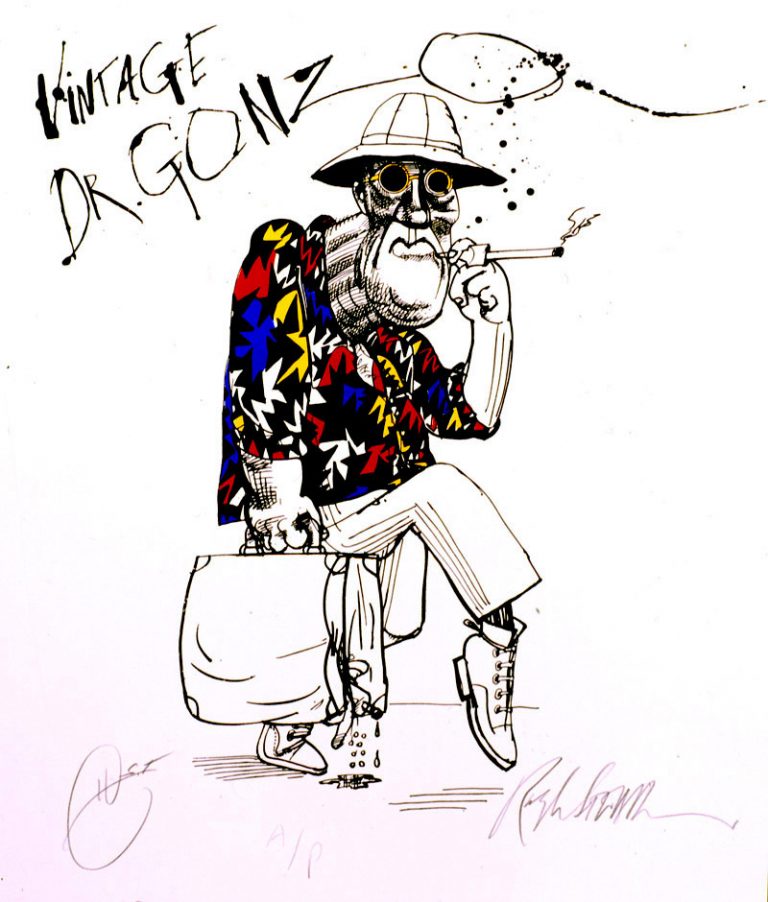 VINTAGE
DR. GONZO
HST
Ralph Steadman
A/P